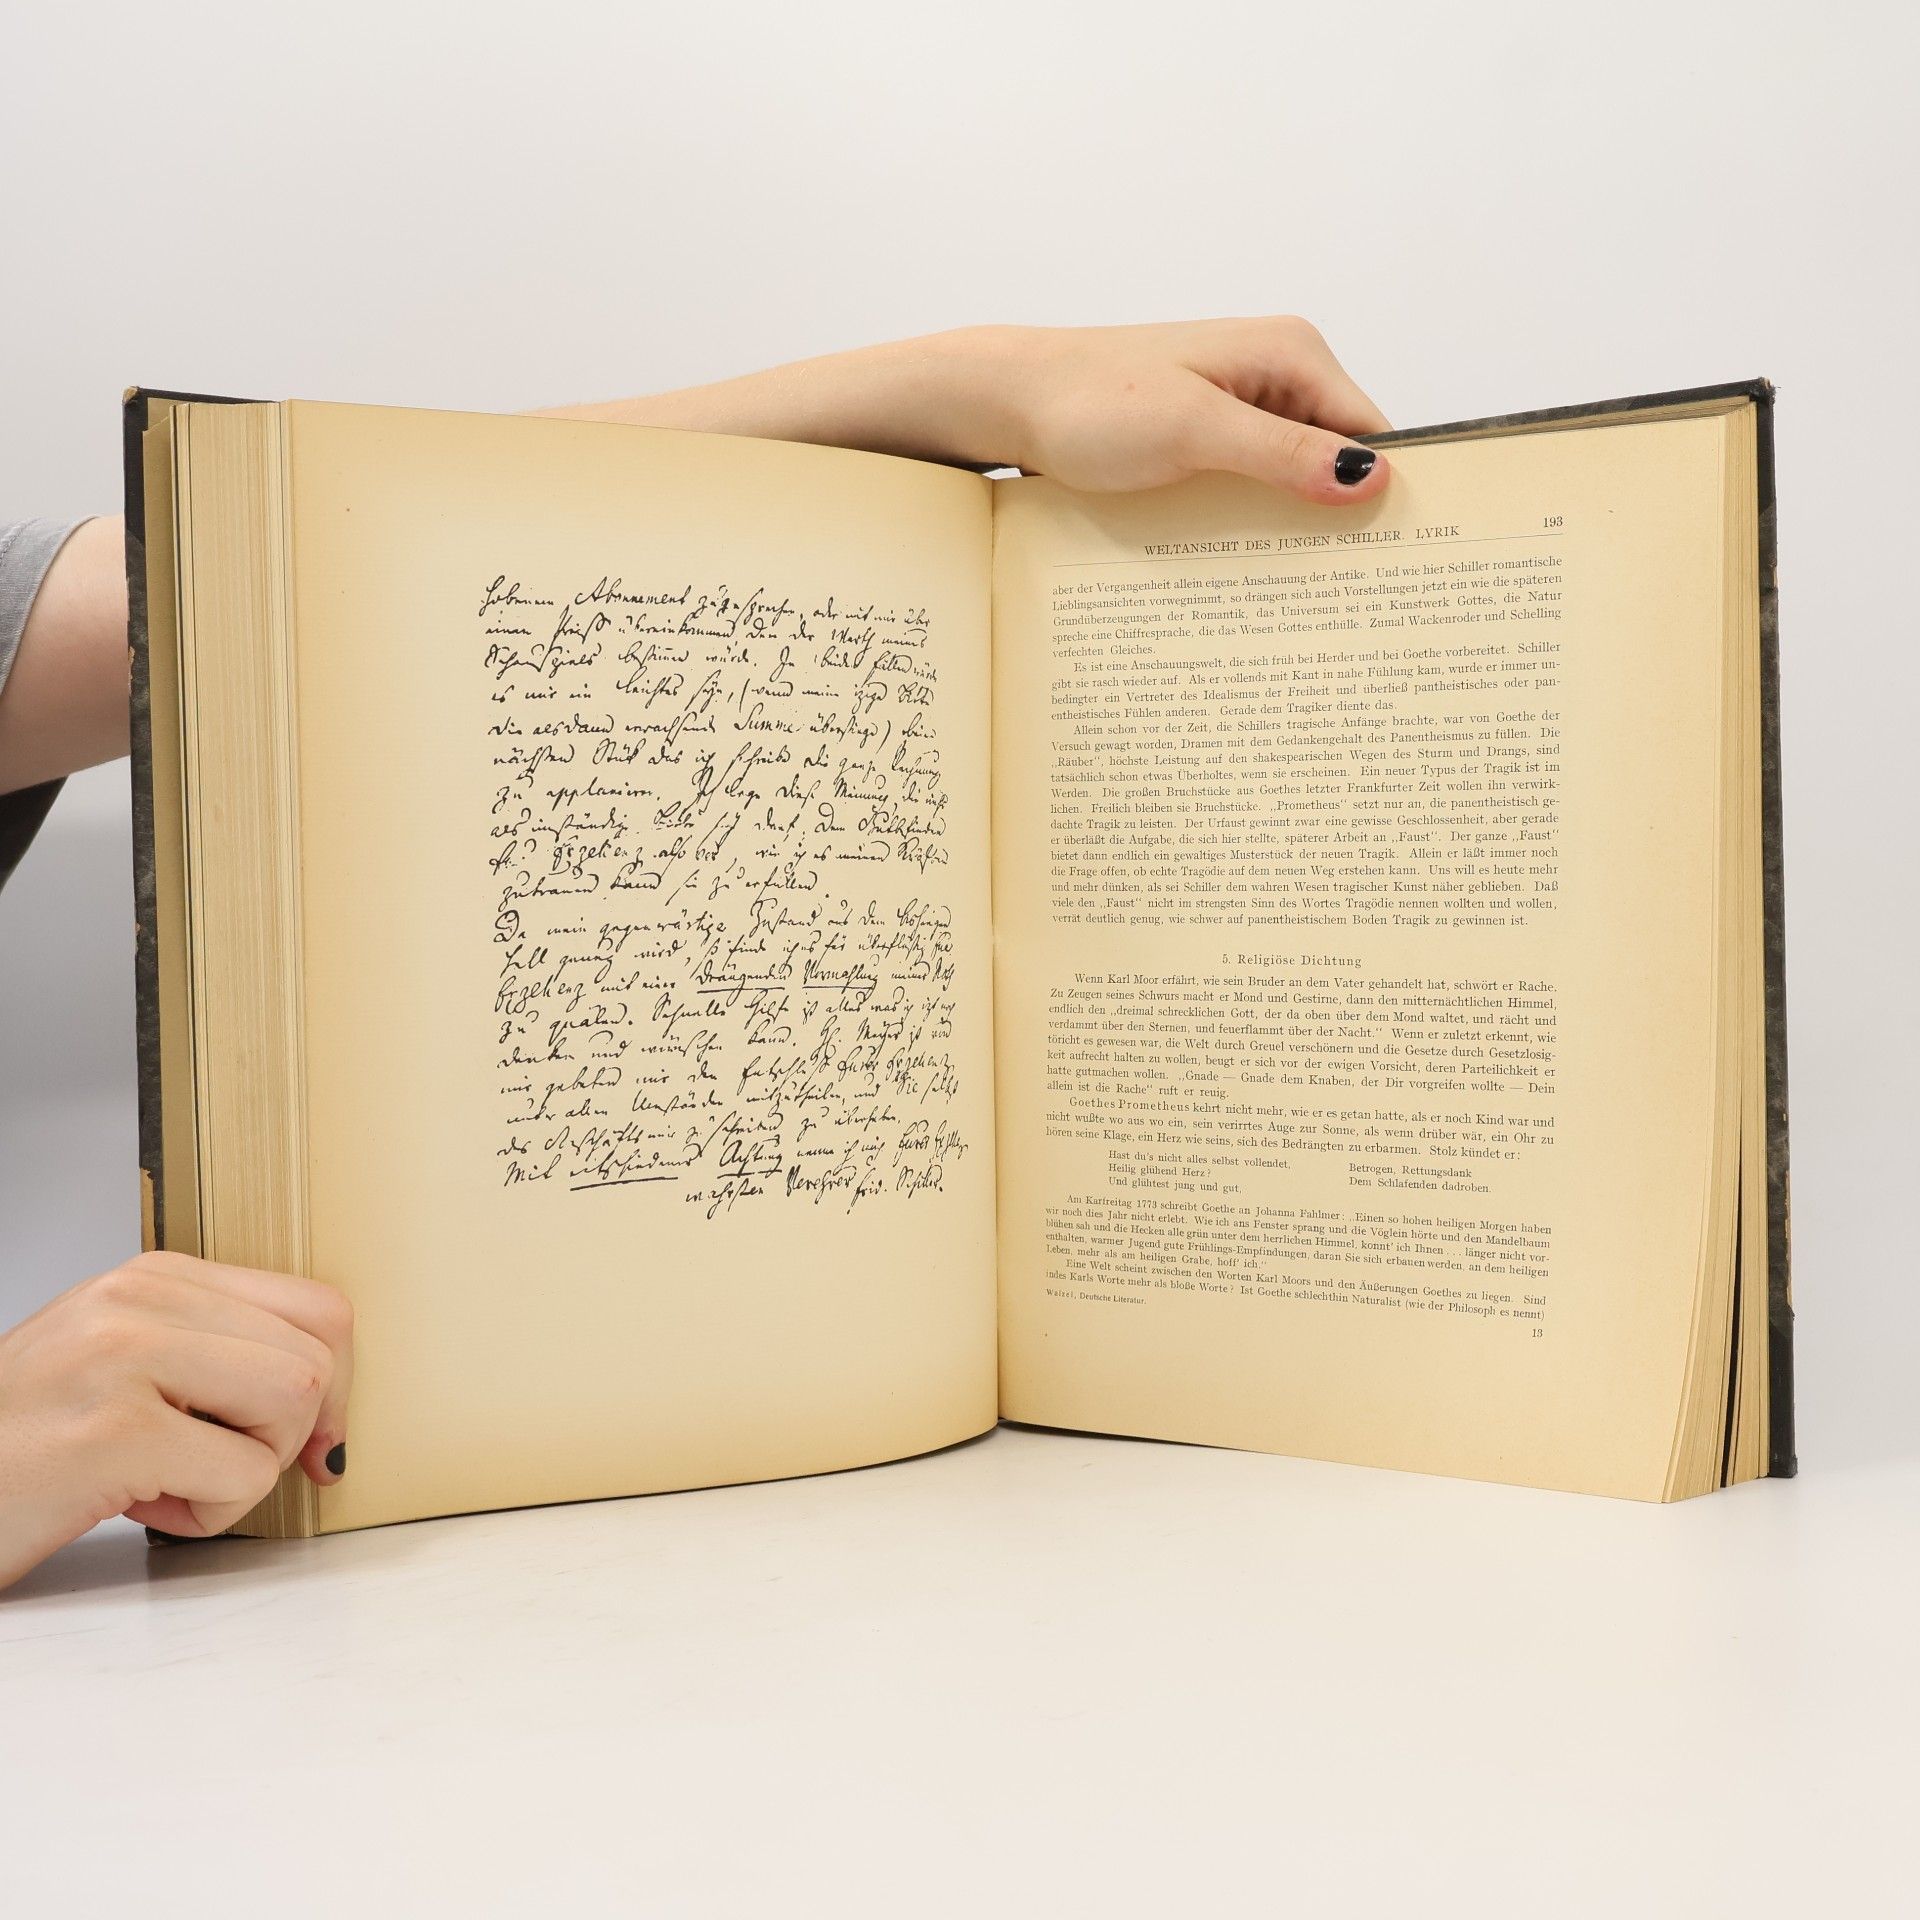 Abonnement zugesprochen, oder mit mir über
einen Preiß übereinkommen, den der Werth meines
Schauspiels bestimmen würde. In beiden Fällen würde
es mir ein leichtes seyn, (wenn meine izige Bitte
die alsdann erwachsende Summe überstiege) beim
nächsten Stük das ich schreibe die ganze Rechnung
zu applanieren. Ich lege diese Meinung, die nichts
als inständige Bitte ist dem Gutbefinden
Exzellenz also vor, wie ich es meinen Kräften
zutrauen kann sie zu erfüllen.
Da mein gegenwärtiger Zustand aus dem bisherigen
hell genug wird, so finde ich es für überflüßig Eure
Exzellenz mit einer drängenden Vormahlung meiner Noth
zu quälen. Schnelle Hilfe ist alles was ich izt noch
denken und wünschen kann. H. Meyer ist von
mir gebeten mir den Entschluß Eurer Exzellenz
unter allen Umständen mitzutheilen, und Sie selbst
des Geschäffts mir zu schreiben zu überheben.
Mit entschiedener Achtung nenne ich mich Eurer Exzellenz
wahrsten Verehrer Frid. Schiller.
WELTANSICHT DES JUNGEN SCHILLER. LYRIK 193
aber der Vergangenheit allein eigene Anschauung der Antike. Und wie hier Schiller romantische
Lieblingsansichten vorwegnimmt, so drängen sich auch Vorstellungen jetzt ein wie die späteren
Grundüberzeugungen der Romantik, das Universum sei ein Kunstwerk Gottes, die Natur
spreche eine Chiffresprache, die das Wesen Gottes enthülle. Zumal Wackenroder und Schelling
verfechten Gleiches.
Es ist eine Anschauungswelt, die sich früh bei Herder und bei Goethe vorbereitet. Schiller
gibt sie rasch wieder auf. Als er vollends mit Kant in nahe Fühlung kam, wurde er immer un-
bedingter ein Vertreter des Idealismus der Freiheit und überließ pantheistisches oder pan-
entheistisches Fühlen anderen. Gerade dem Tragiker diente das.
Allein schon vor der Zeit, die Schillers tragische Anfänge brachte, war von Goethe der
Versuch gewagt worden, Dramen mit dem Gedankengehalt des Panentheismus zu füllen. Die
„Räuber“, höchste Leistung auf den shakespearischen Wegen des Sturm und Drangs, sind
tatsächlich schon etwas Überholtes, wenn sie erscheinen. Ein neuer Typus der Tragik ist im
Werden. Die großen Bruchstücke aus Goethes letzter Frankfurter Zeit wollen ihn verwirk-
lichen. Freilich bleiben sie Bruchstücke. „Prometheus“ setzt nur an, die panentheistisch ge-
dachte Tragik zu leisten. Der Urfaust gewinnt zwar eine gewisse Geschlossenheit, aber gerade
er überläßt die Aufgabe, die sich hier stellte, späterer Arbeit an „Faust“. Der ganze „Faust“
bietet dann endlich ein gewaltiges Musterstück der neuen Tragik. Allein er läßt immer noch
die Frage offen, ob echte Tragödie auf dem neuen Weg erstehen kann. Uns will es heute mehr
und mehr dünken, als sei Schiller dem wahren Wesen tragischer Kunst näher geblieben. Daß
viele den „Faust“ nicht im strengsten Sinn des Wortes Tragödie nennen wollten und wollen,
verrät deutlich genug, wie schwer auf panentheistischem Boden Tragik zu gewinnen ist.
5. Religiöse Dichtung
Wenn Karl Moor erfährt, wie sein Bruder an dem Vater gehandelt hat, schwört er Rache.
Zu Zeugen seines Schwurs macht er Mond und Gestirne, dann den mitternächtlichen Himmel,
endlich den „dreimal schrecklichen Gott, der da oben über dem Mond waltet, und rächt und
verdammt über den Sternen, und feuerflammt über der Nacht.“ Wenn er zuletzt erkennt, wie
töricht es gewesen war, die Welt durch Greuel verschönern und die Gesetze durch Gesetzlosig-
keit aufrecht halten zu wollen, beugt er sich vor der ewigen Vorsicht, deren Parteilichkeit er
hatte gutmachen wollen. „Gnade — Gnade dem Knaben, der Dir vorgreifen wollte — Dein
allein ist die Rache“ ruft er reuig.
Goethes Prometheus kehrt nicht mehr, wie er es getan hatte, als er noch Kind war und
nicht wußte wo aus wo ein, sein verirrtes Auge zur Sonne, als wenn drüber wär, ein Ohr zu
hören seine Klage, ein Herz wie seins, sich des Bedrängten zu erbarmen. Stolz kündet er:
Hast du's nicht alles selbst vollendet,
Heilig glühend Herz?
Und glühtest jung und gut,
Betrogen, Rettungsdank
Dem Schlafenden dadroben.
Am Karfreitag 1773 schreibt Goethe an Johanna Fahlmer: „Einen so hohen heiligen Morgen haben
wir noch dies Jahr nicht erlebt. Wie ich ans Fenster sprang und die Vöglein hörte und den Mandelbaum
blühen sah und die Hecken alle grün unter dem herrlichen Himmel, konnt' ich Ihnen . . . länger nicht vor-
enthalten, warmer Jugend gute Frühlings-Empfindungen, daran Sie sich erbauen werden, an dem heiligen
Leben, mehr als am heiligen Grabe, hoff' ich.“
Eine Welt scheint zwischen den Worten Karl Moors und den Äußerungen Goethes zu liegen. Sind
indes Karls Worte mehr als bloße Worte? Ist Goethe schlechthin Naturalist (wie der Philosoph es nennt)
Walzel, Deutsche Literatur.
13